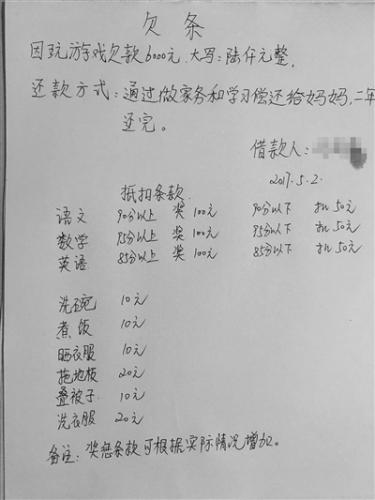 欠条
因玩游戏欠款6000元.大写:陆仟元整.
还款方式:通过做家务和学习偿还给妈妈,二年
还完。
借款人:
2017.5.2.
抵扣条款
语文 90分以上 奖100元 90分以下 扣50元
数学 95分以上 奖100元 95分以下 扣50元
英语 85分以上 奖100元 85分以下 扣50元
洗碗 10元
煮饭 10元
晒衣服 10元
拖地板 20元
叠被子 10元
洗衣服 20元
备注:奖惩条款可根据实际情况增加。